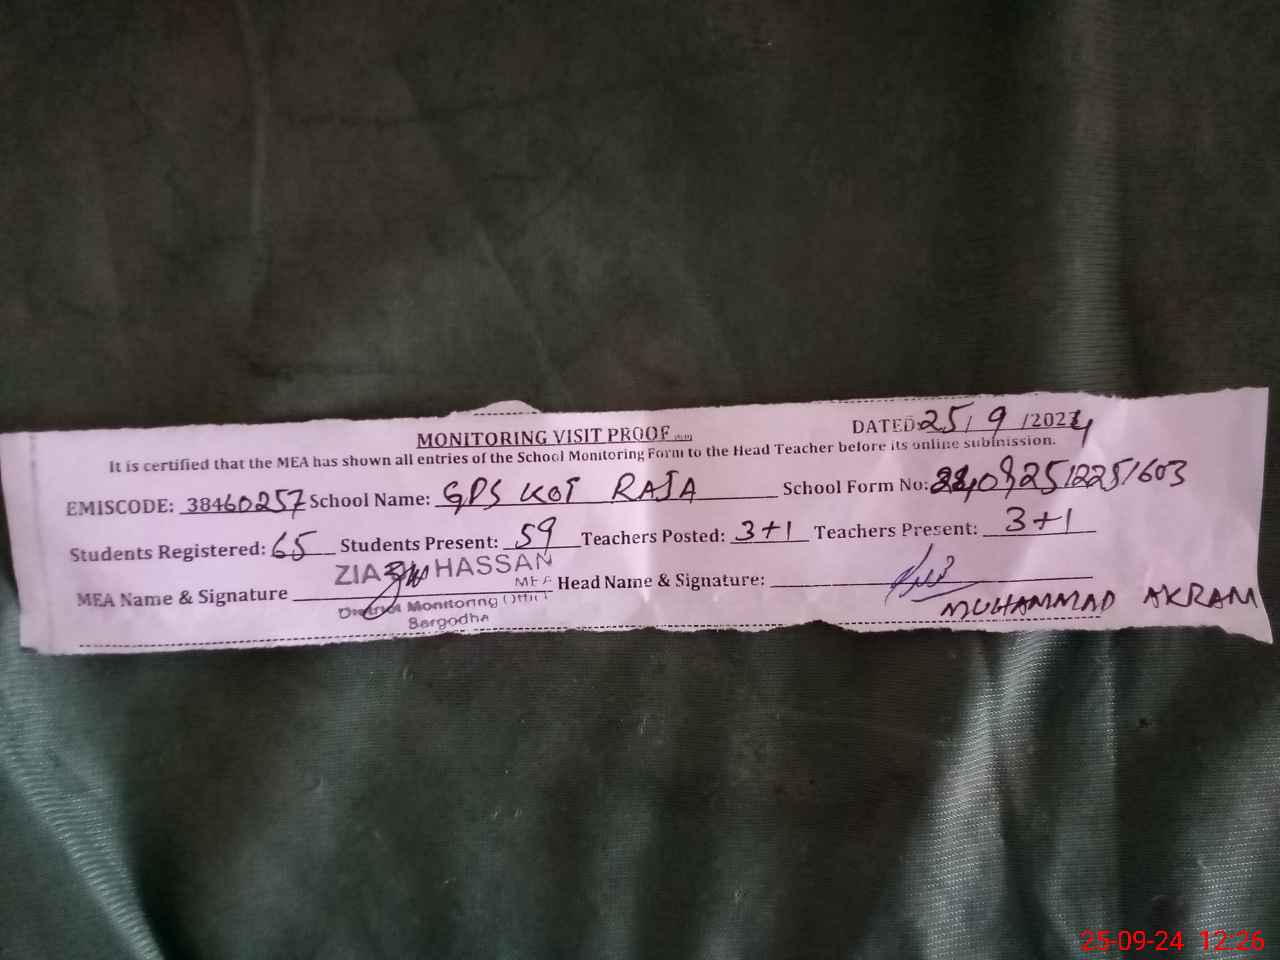 MONITORING VISIT PROOF
DATED: 25/9/2024
It is certified that the MEA has shown all entries of the School Monitoring Form to the Head Teacher before its online submission.
EMISCODE: 38460257 School Name: GPS KOT RAJA School Form No:
Students Registered: 65 Students Present: 59 Teachers Posted: 3+1 Teachers Present: 3+1
MEA Name & Signature ZIA HASSAN Head Name & Signature:
MEA
District Monitoring Office
Sargodha
MUHAMMAD AKRAM
25-09-24 12:26